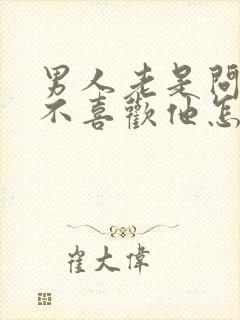 男人老是问
不喜歡他怎
崔大偉